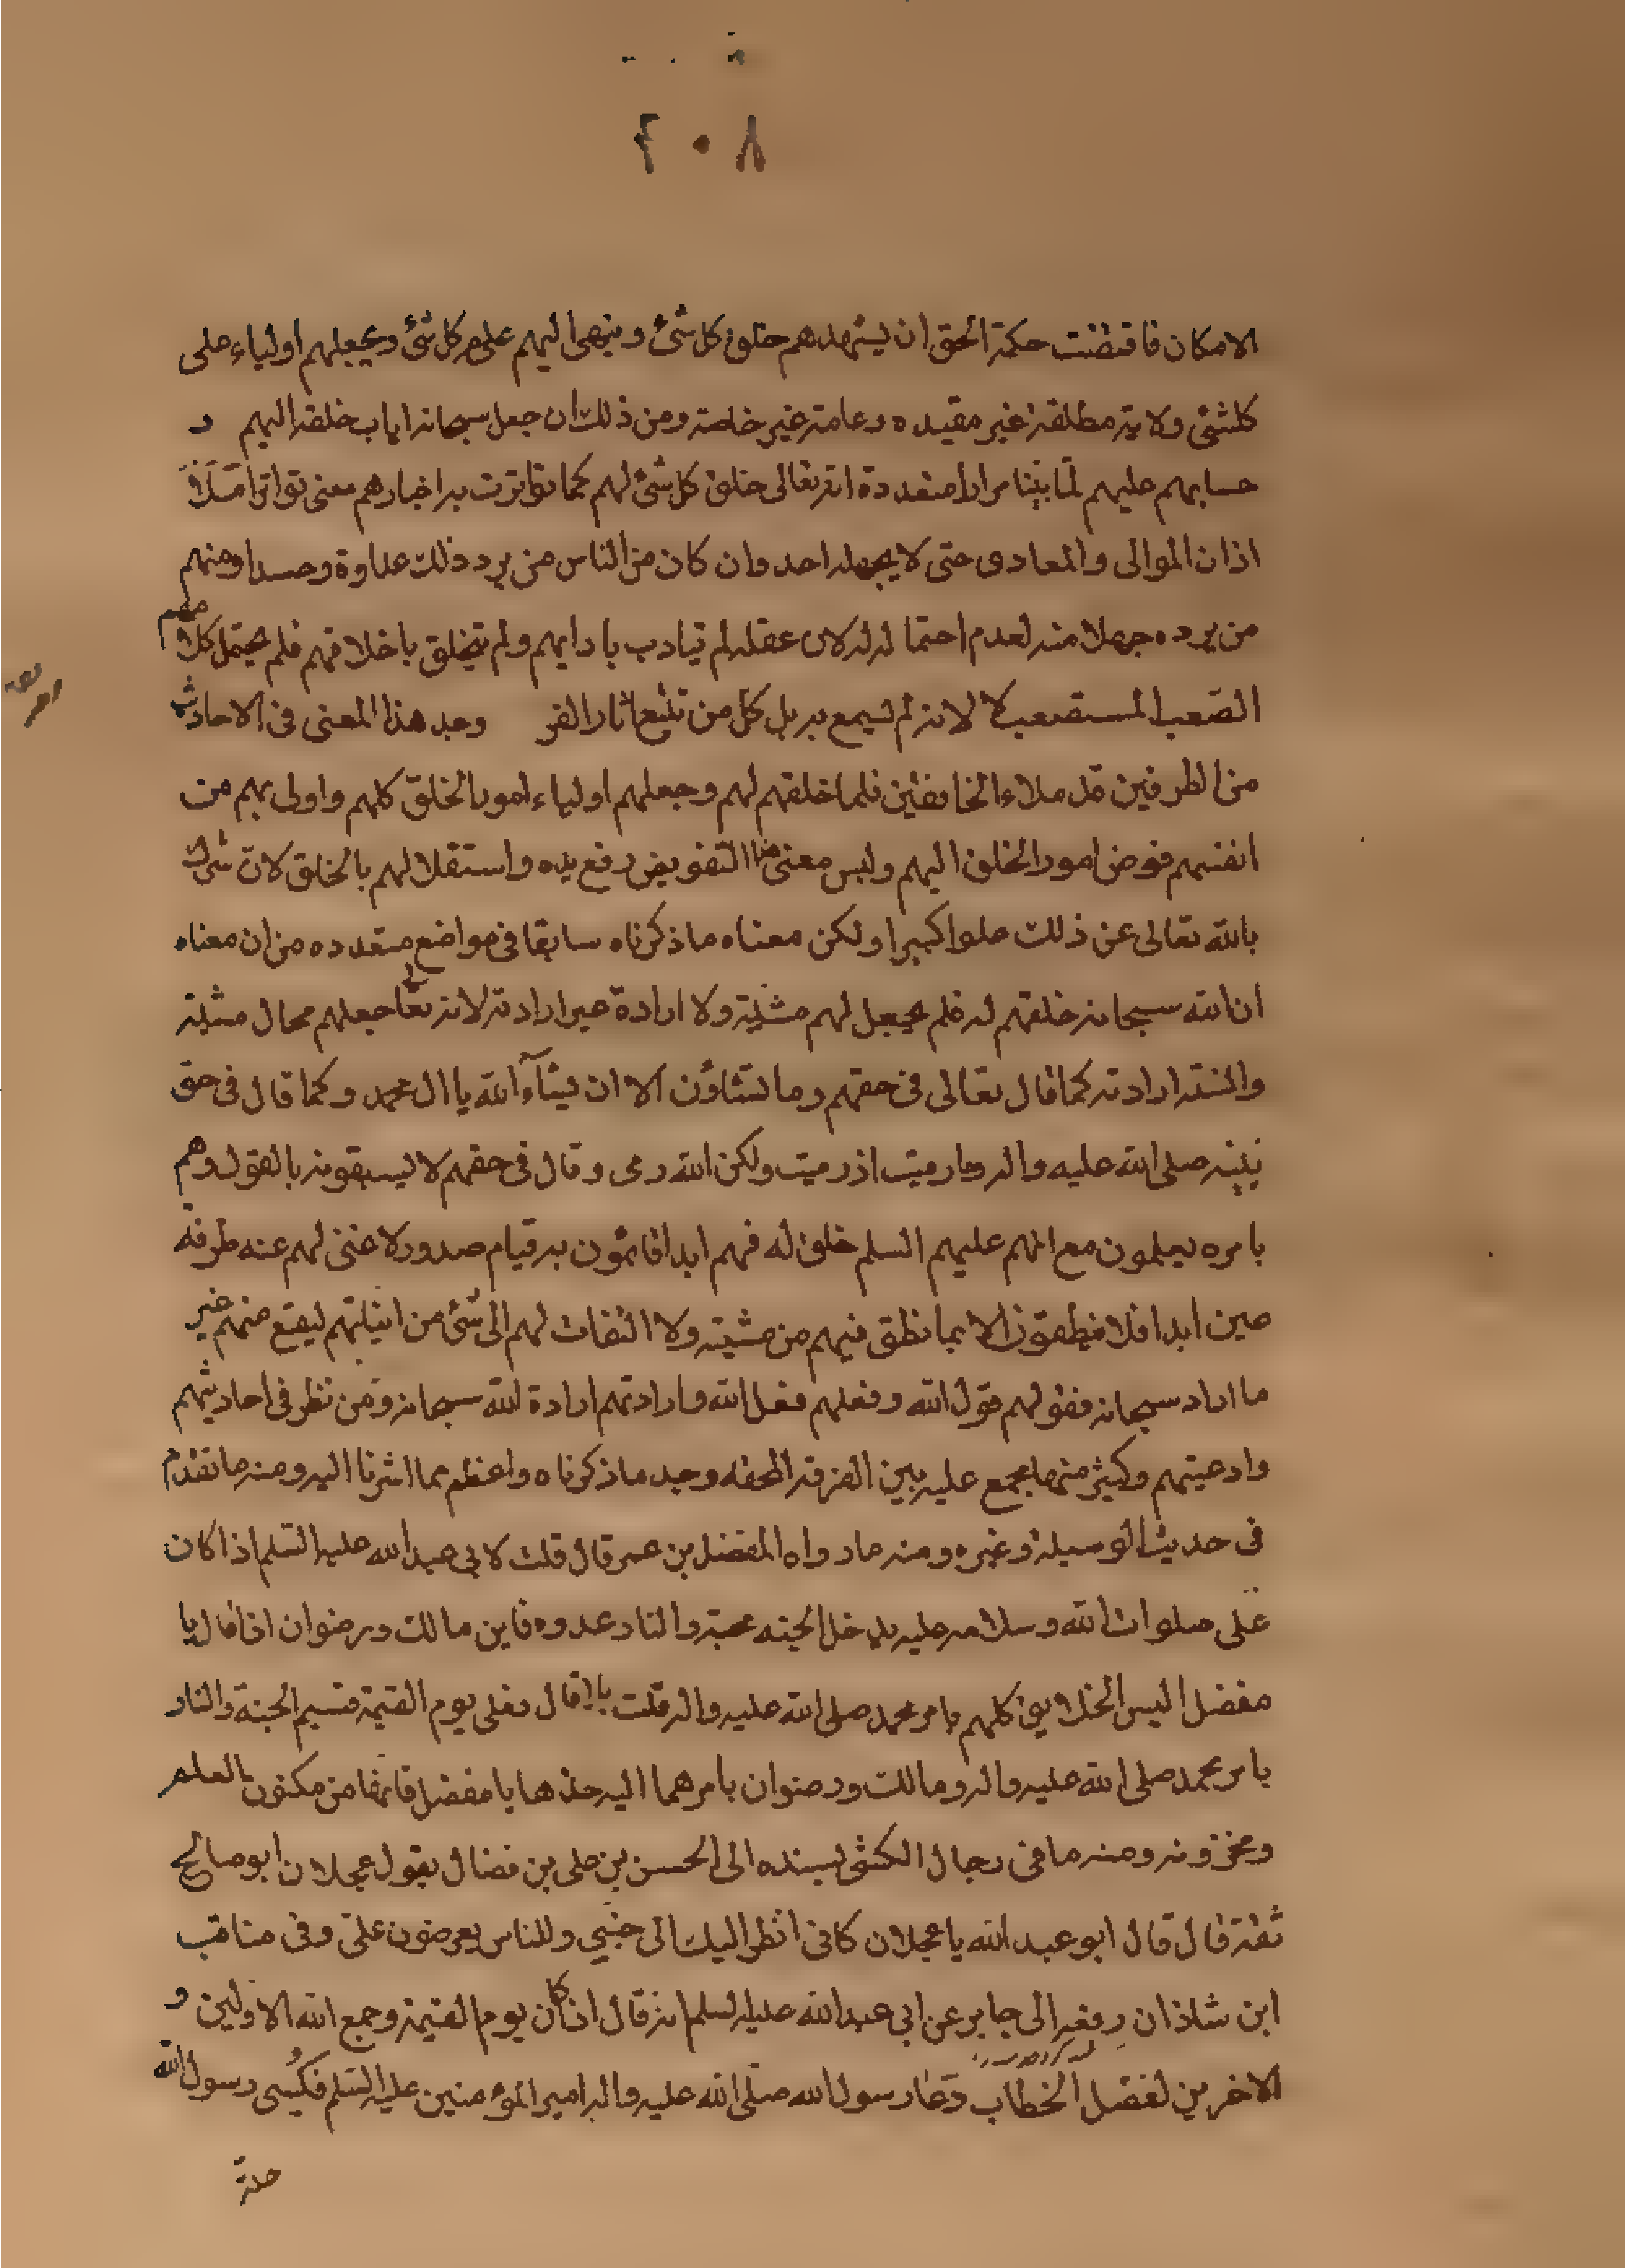 ٢٠٨
الامكان فاقتضت حكمة الحق ان يشهدهم خلق كل شئ وينهى اليهم علم كل شئ ويجعلهم اولياء على
كلشئ ولاية مطلقة غير مقيده وعامة غير خاصة ومن ذلك ان جعل سبحانه اياب خلقه اليهم و
حسابهم عليهم لمّا بيّنا مرارا متعددة انه تعالى خلق كل شئ لهم كما تواترت به اخبارهم معنى تواترا مَلَأَ
اذان الموالى والمعادى حتى لا يجهله احد وان كان من الناس من يرد ذلك عداوة وحسدا ومنهم
من يرده جهلا منه لعدم احتماله له لان عقله لم يتادب بادابهم ولم يتخلق باخلاقهم فلم يحتمل كلامهم
الصّعب المستصعب لا لانه لم يسمع به بل كل من تتبع اثار الفر وجد هذا المعنى فى الاحاديث
من الطرفين قد ملاء الخافقين فلما خلقهم لهم وجعلهم اولياء امور الخلق كلهم واولى بهم من
انفسهم فوض امور الخلق اليهم وليس معنى هذا التفويض رفع يده واستقلالهم بالخلق لانه شرك
بالله تعالى عن ذلك علوا كبيرا ولكن معناه ما ذكرناه سابقا فى مواضع متعدده من ان معناه
ان الله سبحانه خلقهم له فلم يجعل لهم مشية ولا ارادة غير ارادته لانه تعالى جعلهم محال مشيته
والسنة ارادته كما قال تعالى فى حقهم وما تشاؤن الا ان يشآء الله يا ال محمد وكما قال فى حق
نبيّه صلى الله عليه واله وما رميت اذ رميت ولكن الله رمى وقال فى حقهم لا يسبقونه بالقول وهم
بامره يعملون مع انهم عليهم السلم خلق له فهم ابدا قائمون به قيام صدور لا غنى لهم عنه طرفة
عين ابدا فلا ينطقون الا بما نطق فيهم من مشيته ولا التفات لهم الى شئ من انيّاتهم ليقع منهم غير
ما اراد سبحانه فقولهم قول الله وفعلهم فعل الله وارادتهم ارادة لله سبحانه ومن نظر فى احاديثهم
وادعيتهم وكثير منها مجمع عليه بين الفرقة المحقه وجد ما ذكرناه واعظم مما اشرنا اليه ومنه ما تقدم
فى حديث الوسيلة وغيره ومنه ما رواه المفضل بن عمر قال قلت لابى عبد الله عليه السّلم اذا كان
على صلوات الله وسلامه عليه يدخل الجنه محبّه والنار عدوه فاين مالك ورضوان اذا قال يا
مفضل اليس الخلايق كلهم بامر محمد صلى الله عليه واله قلت بلى قال فعلى يوم القيمة قسيم الجنة والنار
بامر محمد صلى الله عليه واله ومالك ورضوان بامرهما اليه خذها يا مفضل فانها من مكنون العلم
ومخزونه ومنه ما فى رجال الكشى بسنده الى الحسن بن على بن فضال يقول عجلان ابو صالح
ثقة قال قال ابو عبد الله يا عجلان كانى انظر اليك الى جنبي والناس يعرضون علىّ وفى مناقب
ابن شاذان رفعه الى جابر عن ابى عبد الله عليه السلم انه قال اذا كان يوم القيمة وجمع الله الاولين و
الاخرين لفصل الخطاب دعا رسول الله صلى الله عليه واله امير المؤمنين عليه السّلم فكُسى رسول الله
حلة